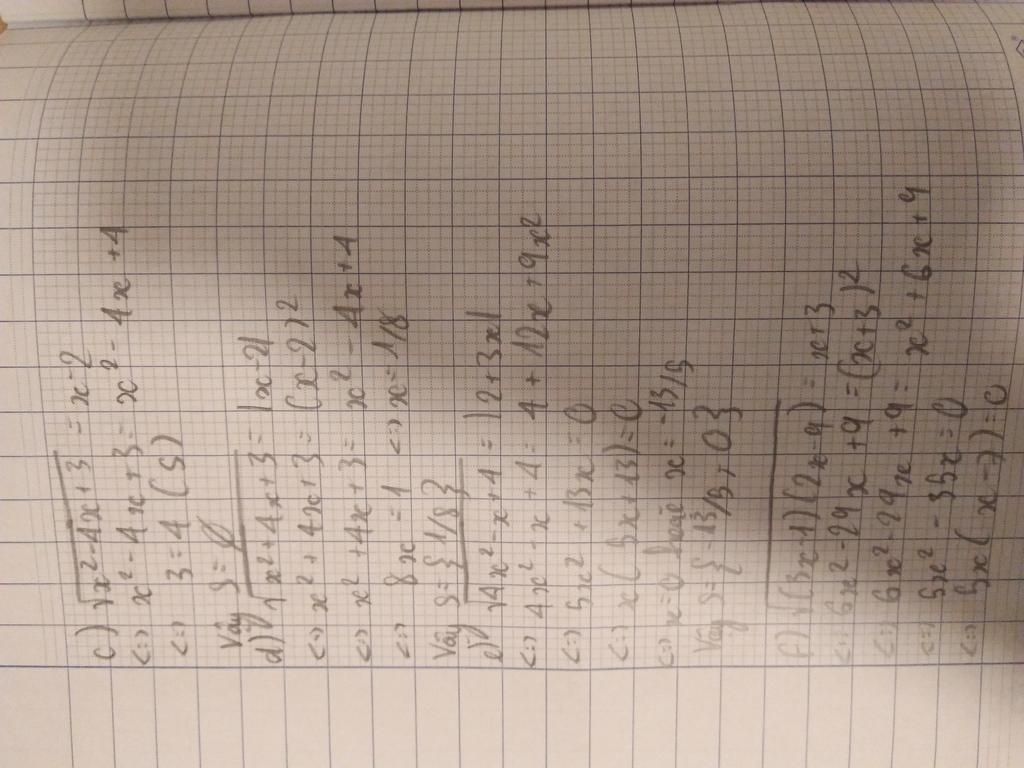 c) √x² - 4x + 3 = x - 2
<=> x² - 4x + 3 = x² - 4x + 4
<=> 3 = 4 (S)
Vậy S = ∅
d) √x² + 4x + 3 = |x - 2|
<=> x² + 4x + 3 = (x - 2)²
<=> x² + 4x + 3 = x² - 4x + 4
<=> 8x = 1 <=> x = 1/8
Vậy S = {1/8}
e) √4x² - x + 4 = |2 + 3x|
<=> 4x² - x + 4 = 4 + 12x + 9x²
<=> 5x² + 13x = 0
<=> x(5x + 13) = 0
<=> x = 0 hoặc x = -13/5
Vậy S = {-13/5, 0}
f) √(3x - 1)(2x - 9) = x + 3
<=> 6x² - 29x + 9 = (x + 3)²
<=> 6x² - 29x + 9 = x² + 6x + 9
<=> 5x² - 35x = 0
<=> 5x(x - 7) = 0